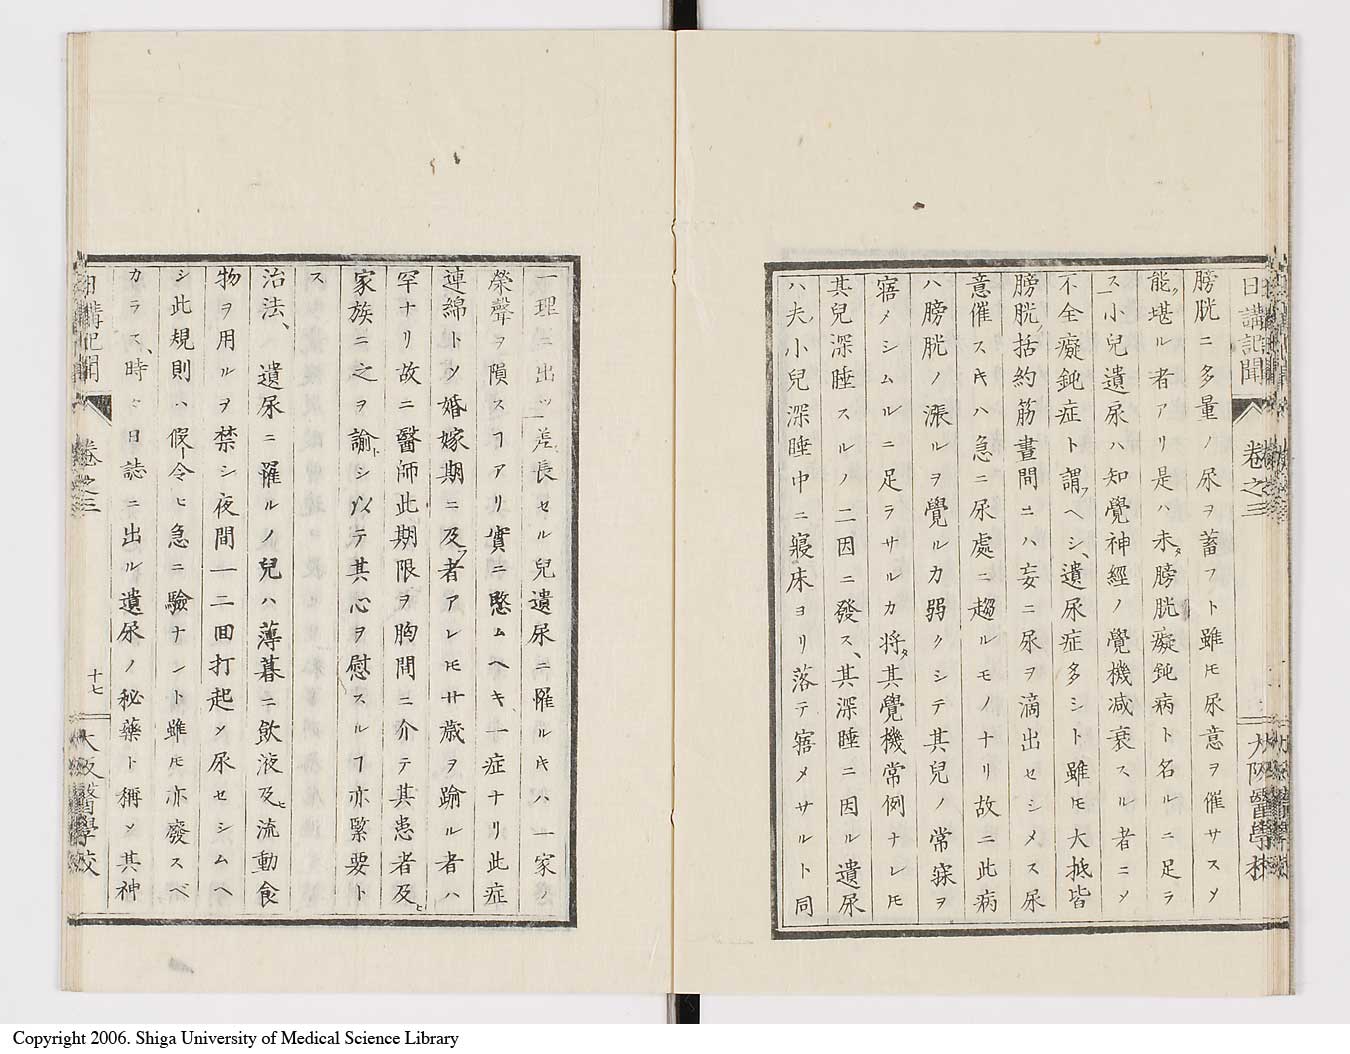 日講記聞 卷之三 大阪醫學校
膀胱ニ多量ノ尿ヲ蓄フト雖𪜈尿意ヲ催サスメ
能ク堪ル者アリ是ハ未タ膀胱癡鈍病ト名ルニ足ラ
ス小兒遺尿ハ知覺神經ノ覺機减衰スル者ニメ
不全癡鈍症ト謂フヘシ、遺尿症多シト雖𪜈大抵皆
膀胱ノ括約筋晝間ニハ妄ニ尿ヲ滴出セシメス尿
意催スキハ急ニ尿處ニ趨ルモノナリ故ニ此病
ハ膀胱ノ漲ルヲ覺ルカ弱クシテ其兒ノ常寐ヲ
寤メシムルニ足ラサルカ將タ其覺機常例ナレ𪜈
其兒深睡スルノ二因ニ發ス、其深睡ニ因ル遺尿
ハ夫ノ小兒深睡中ニ寢床ヨリ落テ寤メサルト同
一理ニ出ツ 差長セル兒遺尿ニ罹ルキハ一家ノ
榮聲ヲ隕スヿアリ實ニ愍ムヘキ一症ナリ此症
連綿トメ婚嫁期ニ及フ者アレ𪜈廿歳ヲ踰ル者ハ
罕ナリ故ニ醫師此期限ヲ胸間ニ介テ其患者及ヒ
家族ニ之ヲ諭シ以テ其心ヲ慰スルヿ亦緊要ト
ス
治法、遺尿ニ罹ルノ兒ハ薄暮ニ飲液及ヒ流動食
物ヲ用ルヲ禁シ夜間一二回打起メ尿セシムヘ
シ此規則ハ假令ヒ急ニ驗ナシト雖𪜈亦廢スベ
カラス、時々日誌ニ出ル遺尿ノ秘藥ト稱メ其神
日講記聞 卷之三 十七 大阪醫學校
Copyright 2006. Shiga University of Medical Science Library